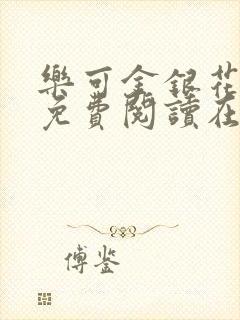 樂可金銀花
免費閱讀在
傅鉴